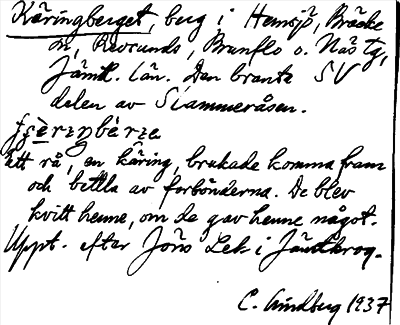 Käringberget, berg i Hemsjö, Bräcke
sn, Revsunds, Brunflo o. Näs tg,
Jämtl. län. Den branta SV
delen av Stammeråsen.
Ett rå, en käring, brukade komma fram
och bettla av forbönderna. De blev
kvitt henne, om de gav henne något.
Uppt. efter Jöns Lek i Jämtkrog.
C. Lindberg 1937